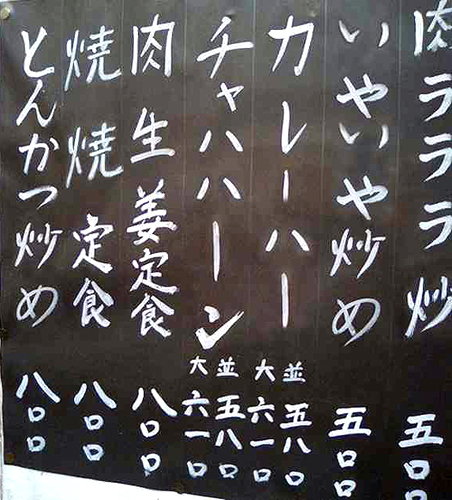 肉ラララ炒 五〇〇
いやいや炒め 五〇〇
カレーハー 並 五八〇
大 六一〇
チャハハーン 並 五八〇
大 六一〇
肉生姜定食 八〇〇
焼焼定食 八〇〇
とんかつ炒め 八〇〇